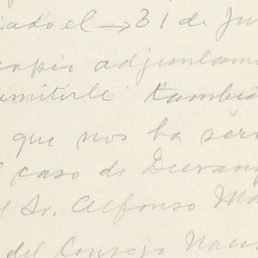 ado el → 31 de Ju
copia adjuntam
emitirle tambié
que nos ha ser
l caso de Durang
l Sr. Alfonso Ma
del Consejo Nac